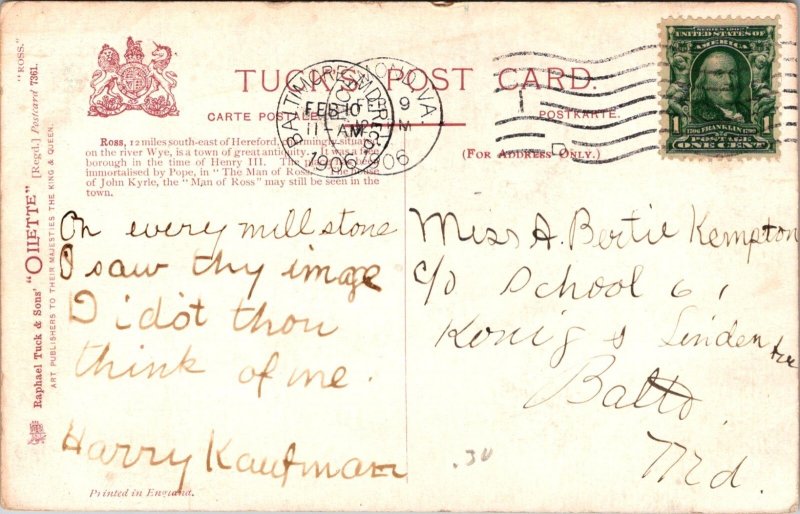 "ROSS."
[Regd.] Postcard 7361.
Raphael Tuck & Sons' "OILETTE"
ART PUBLISHERS TO THEIR MAJESTIES THE KING & QUEEN.
TUCK'S POST CARD.
CARTE POSTALE
POSTKARTE.
(FOR ADDRESS ONLY.)
Ross, 12 miles south-east of Hereford,
on the river Wye, is a town of great
borough in the time of Henry III. The
immortalised by Pope, in "The Man of Ross."
of John Kyrle, the "Man of Ross" may still be seen in the
town.
BALTIMORE, MD.
FEB 10
11-AM
1906
VA.
9
M
1906
SERIES 1902
UNITED STATES OF
AMERICA
1 1
1706 FRANKLIN 1790
POSTAGE
ONE CENT
On every mill stone
I saw thy image
Didst thou
think of me.
Harry Kaufman
Miss A. Bertie Kempton
c/o School 6,
Konig & Linden
Balto.
Md.
.30
Printed in England.